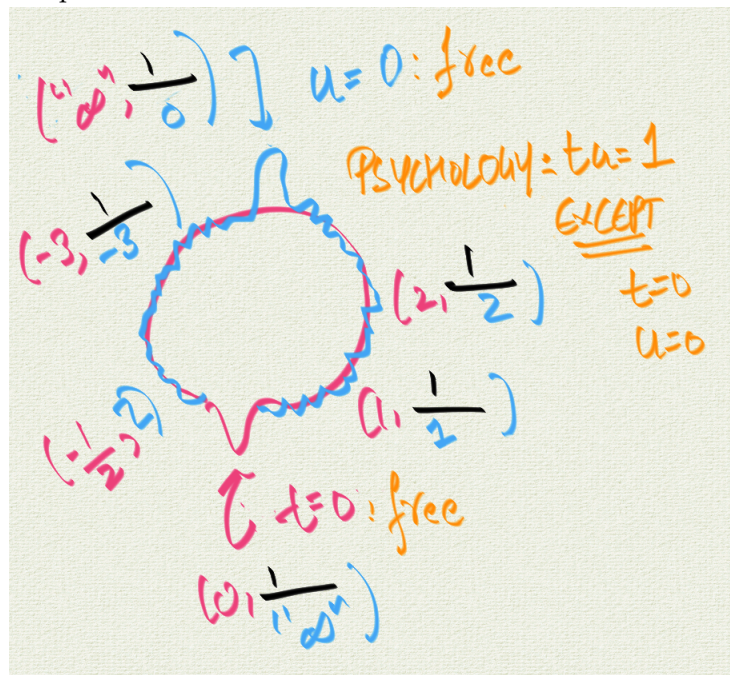 ("∞", 1/0) ] u=0: free
PSYCHOLOGY: tu=1
EXCEPT
t=0
u=0
(-3, 1/-3)
(2, 1/2)
(1, 1/1)
(-1/2, 2)
[ t=0: free
(0, 1/"∞")